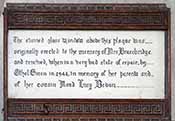 The stained glass window above this plaque was
originally erected to the memory of Mrs Bracebridge,
and restored, when in a very bad state of repair, by
Ethel Green in 1944, in memory of her parents and,
of her cousin Maud Lucy Bevan